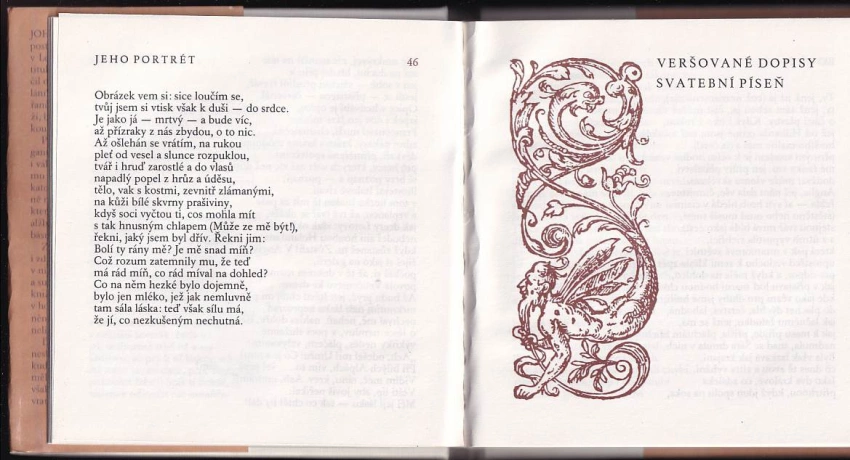 JEHO PORTRÉT
46
Obrázek vem si: sice loučím se,
tvůj jsem si vtisk však k duši — do srdce.
Je jako já — mrtvý — a bude víc,
až přízraky z nás zbydou, o to nic.
Až ošlehán se vrátím, na rukou
pleť od vesel a slunce rozpuklou,
tvář i hruď zarostlé a do vlasů
napadlý popel z hrůz a úděsu,
tělo, vak s kostmi, zevnitř zlámanými,
na kůži bílé skvrny prašiviny,
když soci vyčtou ti, cos mohla mít
s tak hnusným chlapem (Může ze mě být!),
řekni, jaký jsem byl dřív. Řekni jim:
Bolí ty rány mě? Je mě snad míň?
Což rozum zatemnily mu, že teď
má rád míň, co rád míval na dohled?
Co na něm hezké bylo dojemně,
bylo jen mléko, jež jak nemluvně
tam sála láska: teď však sílu má,
že jí, co nezkušeným nechutná.
VERŠOVANÉ DOPISY
SVATEBNÍ PÍSEŇ